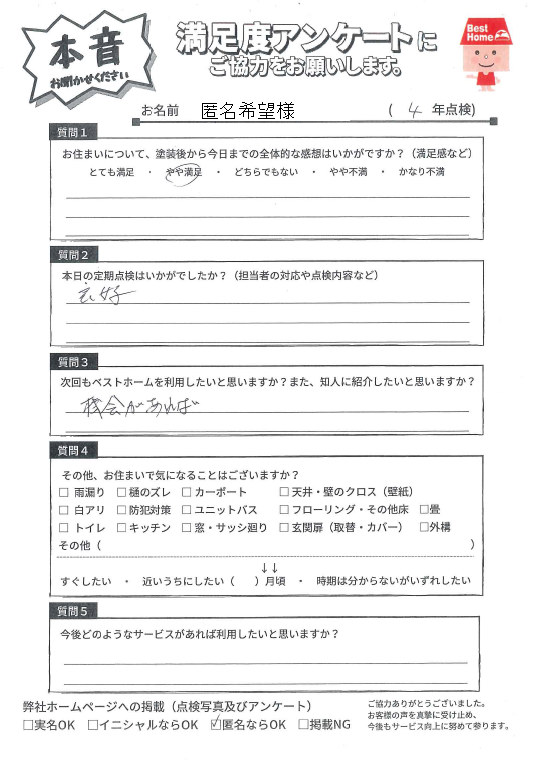 本音
お聞かせください
満足度アンケートに
ご協力をお願いします。
Best
Home
お名前 匿名希望様 ( 4 年点検)
質問1
お住まいについて、塗装後から今日までの全体的な感想はいかがですか？（満足感など）
とても満足 ・ やや満足 ・ どちらでもない ・ やや不満 ・ かなり不満
質問2
本日の定期点検はいかがでしたか？（担当者の対応や点検内容など）
良好
質問3
次回もベストホームを利用したいと思いますか？また、知人に紹介したいと思いますか？
機会があれば
質問4
その他、お住まいで気になることはございますか？
□ 雨漏り □ 樋のズレ □ カーポート □ 天井・壁のクロス（壁紙）
□ 白アリ □ 防犯対策 □ ユニットバス □ フローリング・その他床 □畳
□ トイレ □ キッチン □ 窓・サッシ廻り □ 玄関扉（取替・カバー） □外構
その他（ ）
↓↓
すぐしたい ・ 近いうちにしたい（ ）月頃 ・ 時期は分からないがいずれしたい
質問5
今後どのようなサービスがあれば利用したいと思いますか？
弊社ホームページへの掲載（点検写真及びアンケート）
□実名OK □イニシャルならOK ☑匿名ならOK □掲載NG
ご協力ありがとうございました。
お客様の声を真摯に受け止め、
今後もサービス向上に努めて参ります。